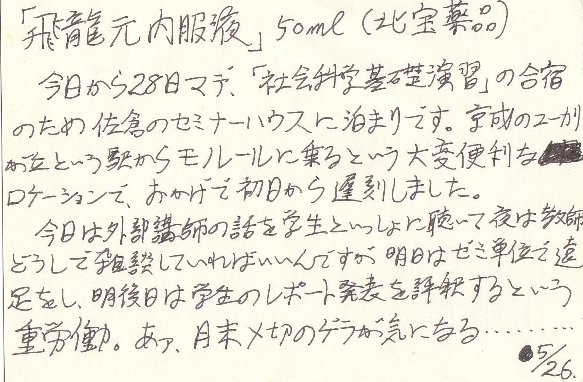 「飛龍元内服液」50ml(北宝薬品)
今日から28日マデ、「社会科学基礎演習」の合宿
のため佐倉のセミナーハウスに泊まりです。京成のユーカリ
が丘という駅からモノレールに乗るという大変便利な
ロケーションで、おかげで初日から遅刻しました。
今日は外部講師の話を学生といっしょに聴いて夜は教師
どうしで雑談していればいいんですが明日はゼミ単位で遠
足をし、明後日は学生のレポート発表を評釈するという
重労働。あァ、月末〆切のゲラが気になる………
5/26.